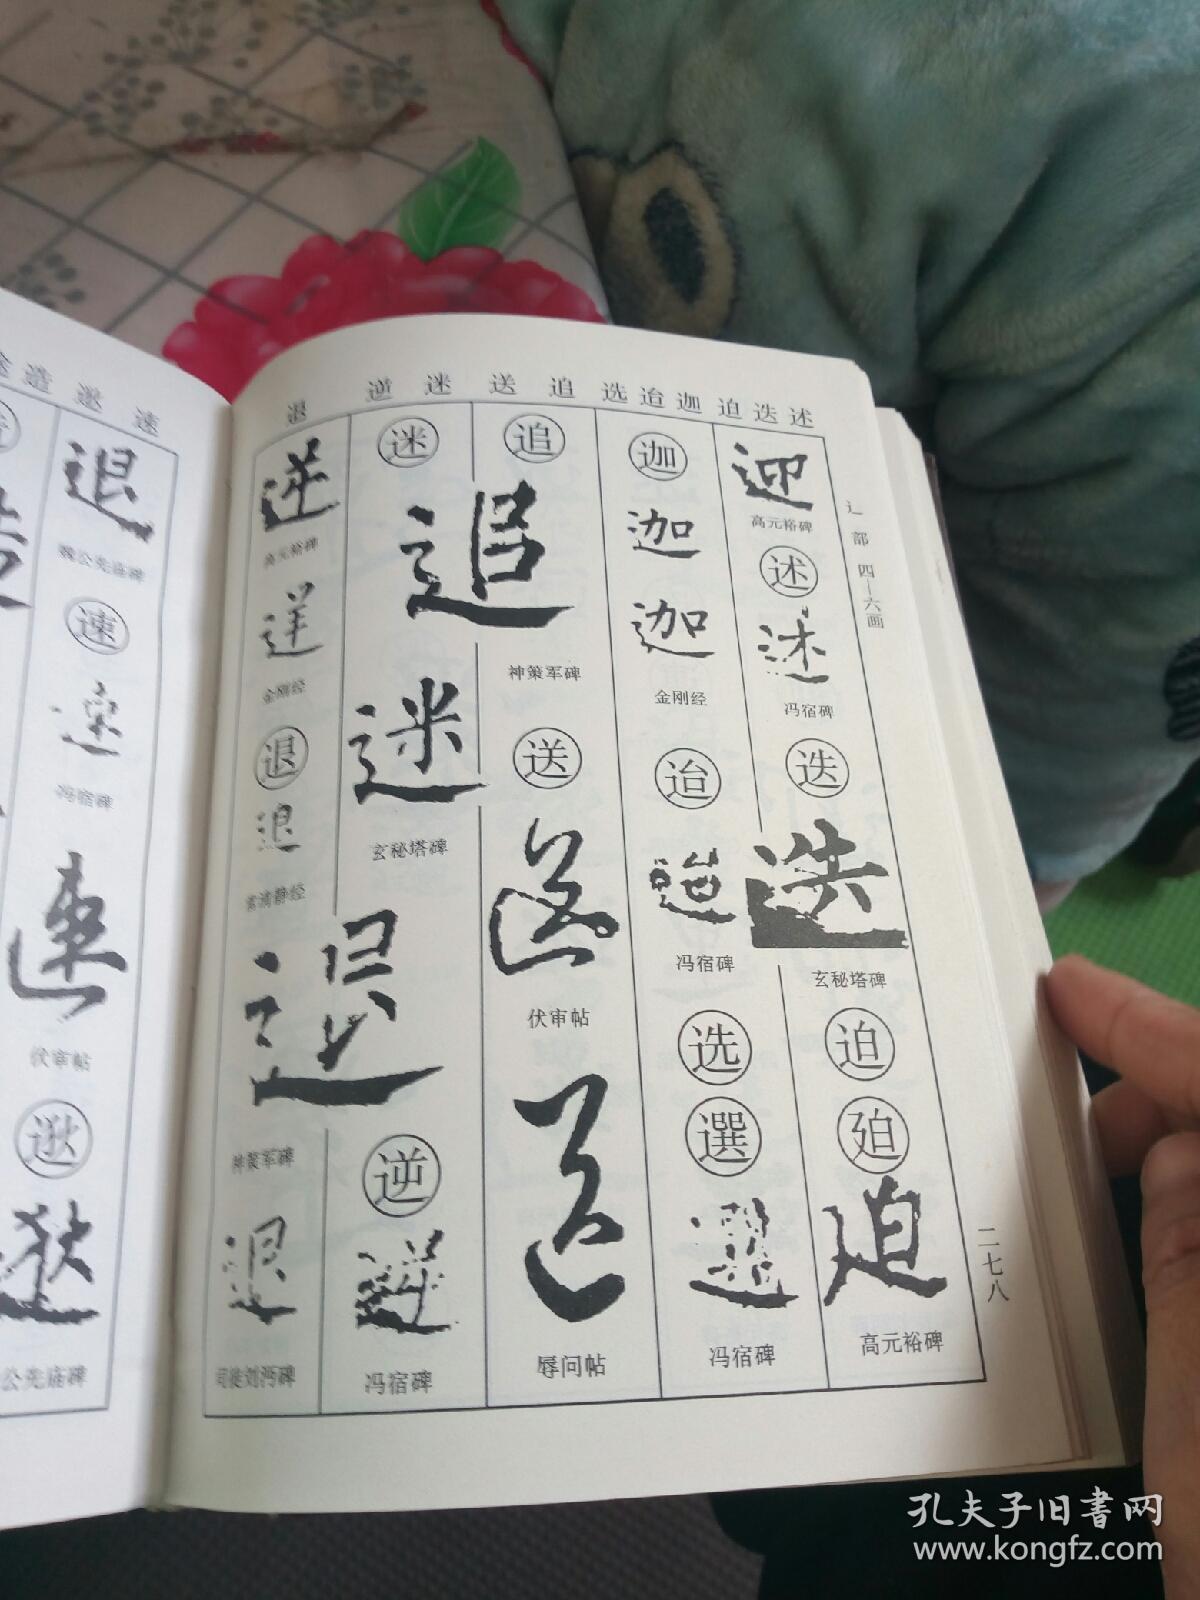 述迭迫迦迨选追送迷逆退
辶部 四—六画
二七八
迎
高元裕碑
述
述
冯宿碑
迭
迭
玄秘塔碑
迫
廹
迫
高元裕碑
迦
迦
迦
金刚经
迨
迨
冯宿碑
选
選
選
冯宿碑
追
追
神策军碑
送
送
伏审帖
送
辱问帖
迷
迷
玄秘塔碑
逆
逆
冯宿碑
逆
高元裕碑
逆
金刚经
退
退
常清静经
退
神策军碑
退
司徒刘沔碑
速逖造途
退
魏公先庙碑
速
速
冯宿碑
速
伏审帖
逖
逖
公先庙碑
孔夫子旧書网
www.kongfz.com